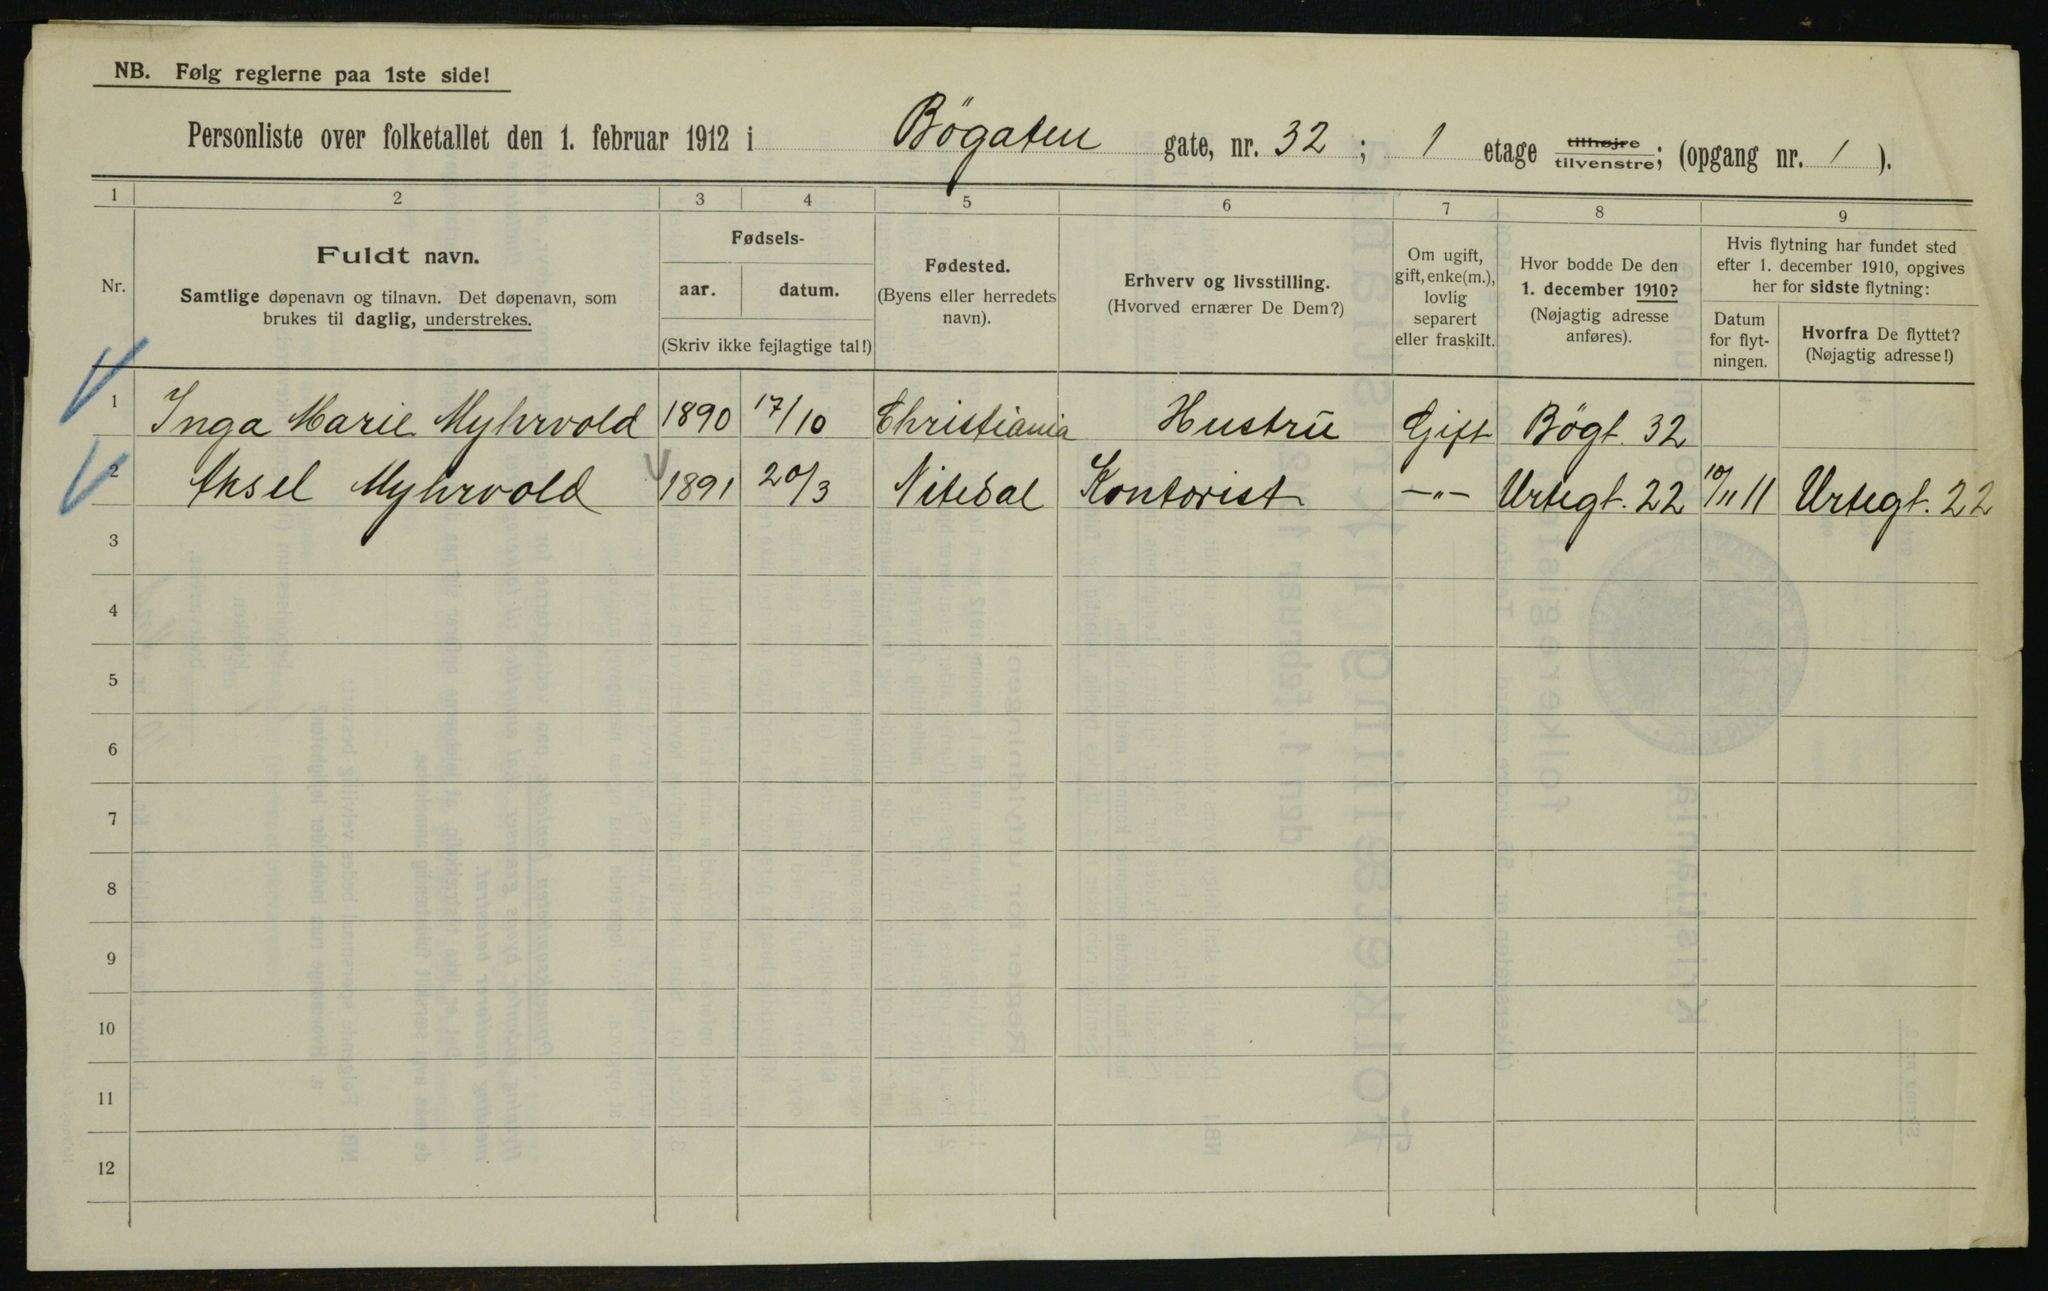 NB. Følg reglerne paa 1ste side!
Personliste over folketallet den 1. februar 1912 i Bögaten gate, nr. 32; 1 etage tilhøjre tilvenstre; (opgang nr. 1).
1 2 3 4 5 6 7 8 9
Nr.
Fuldt navn.
Samtlige døpenavn og tilnavn. Det døpenavn, som
brukes til daglig, understrekes.
Fødsels-
aar. datum.
(Skriv ikke fejlagtige tal!)
Fødested.
(Byens eller herredets
navn).
Erhverv og livsstilling.
(Hvorved ernærer De Dem?)
Om ugift,
gift, enke(m.),
lovlig
separert
eller fraskilt.
Hvor bodde De den
1. december 1910?
(Nøjagtig adresse
anføres).
Hvis flytning har fundet sted
efter 1. december 1910, opgives
her for sidste flytning:
Datum
for flyt-
ningen.
Hvorfra De flyttet?
(Nøjagtig adresse!)
1 Inga Marie Myhrvold 1890 17/10 Christiania Hustru Gift Bögt. 32
2 Aksel Myhrvold 1891 20/3 Nitedal Kontorist —"— Urtegt. 22 10/11 11 Urtegt. 22
3
4
5
6
7
8
9
10
11
12